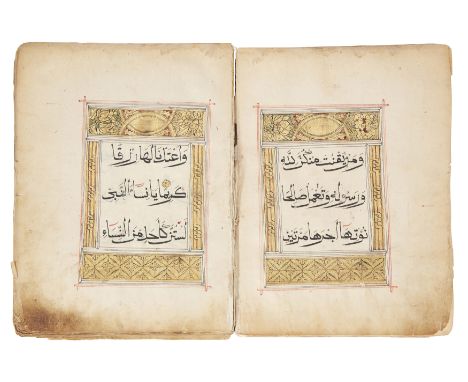 ومن يقنت منكن لله
ورسوله وتعمل صالحا
نؤتها أجرها مرتين
وأعتدنا لها رزقا
كريما يا نساء النبي
لستن كأحد من النساء